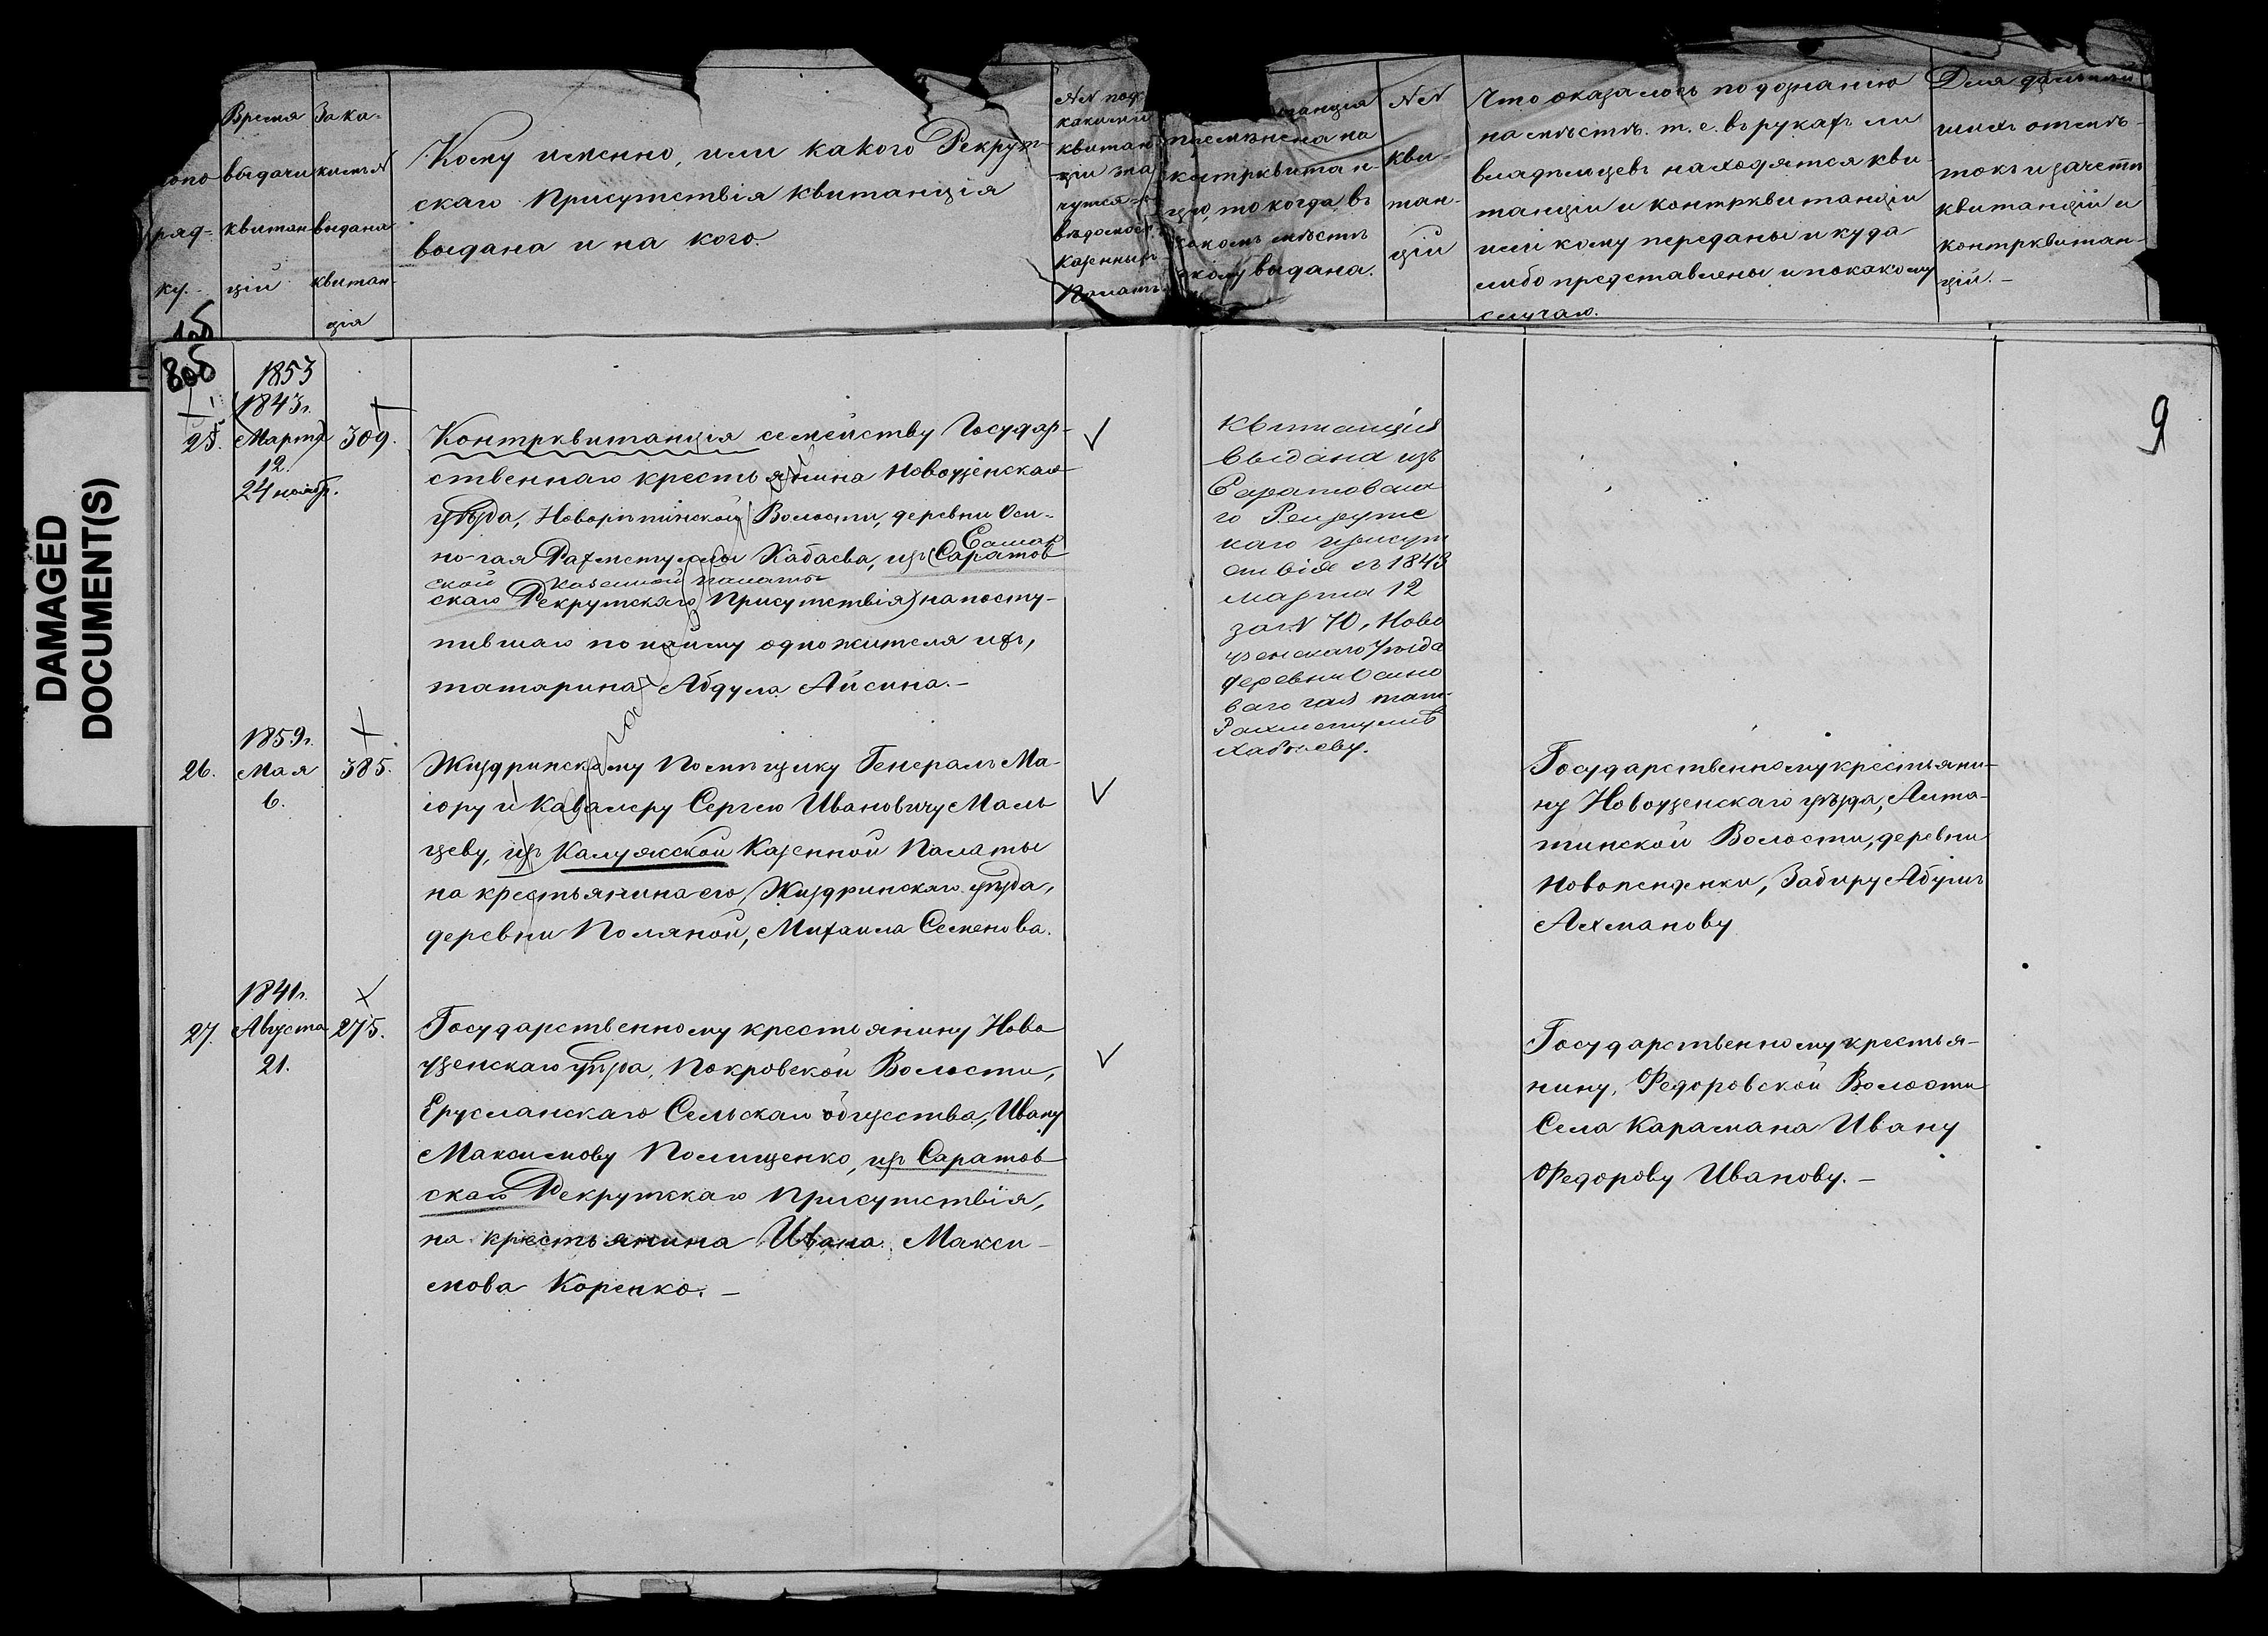 DAMAGED
DOCUMENT(S)
Время
выдачи
квитан
цій
ряд-
ку.
За ка-
кимъ N
выдана
квитан-
ція
Кому именно, или какого Рекрут-
скаго Присутствія квитанція
выдана и на кого.
NN под
какими
квитан
ціи зна
чутся
вѣдомост.
Казенныхъ
Палатъ.
на
контрквитан
цію, то когда въ
какомъ мѣстѣ
и кому выдана.
NN
кви-
тан-
ціи
Что оказалось по дознанію
на мѣстѣ. т. е. въ рукахъ ли
владѣльцевъ находятся кви
танціи и контрквитанціи
или кому переданы и куда
либо представлены и по какому
случаю.
Для дальнѣй
шихъ отмѣ-
токъ и зачетѣ
квитанцій и
контрквитан-
цій. –
8об
9
1853
1843г.
25. Марта 309.
12.
24 ноябр.
Контрквитанція семейству Государ-
ственнаго крестьянина Новоузенскаго
уѣзда, Новорѣпинской Волости, деревни Оси-
но-гая Рахметуллы Кабаева, изъ Саратов
Самар
ской Казенной палаты
скаго Рекрутскаго Присутствія) на посту-
пившаго по найму одножителя ихъ,
татарина Абдула Айсина. –
Квитанція
выдана изъ
Саратовска
го Рекрутс
каго присут
ствія въ 1843
марта 12
за N 70, Ново
узенскаго Уѣзда
деревни Осино
ваго гая татар
Рахметуллѣ
Кабаеву.
1859г.
26. Мая 385.
6.
Жиздринскому Помѣщику Генералъ Ма-
іору и Кавалеру Сергею Ивановичу Маль
цеву, изъ Калужской Казенной Палаты
на крестьянина его, Жиздринскаго уѣзда,
деревни Поляной, Михаила Семенова.
Государственному крестьяни-
ну Новоузенскаго уѣзда, Алта-
тинской Волости, деревни
Новопензенки, Забиру Абдулъ
Ахманову
1841г.
27. Августа 275.
21.
Государственному крестьянину Ново
узенскаго уѣзда, Покровской Волости,
Ерусланскаго Сельскаго общества, Ивану
Максимову Полищенко, изъ Саратов
скаго Рекрутскаго Присутствія,
на крестьянина Ивана Макси-
мова Коренко. –
Государственному крестья-
нину, Федоровской Волости
Села Карамана Ивану
Федорову Иванову. –